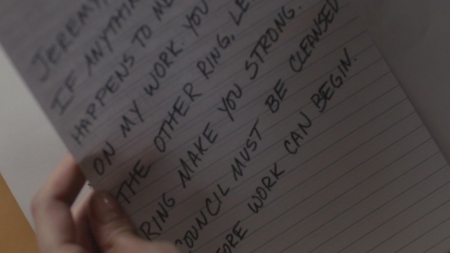 JEREMY,
IF ANYTHIN
HAPPENS TO ME
ON MY WORK. YOU
THE OTHER RING. LE
RING MAKE YOU STRONG.
COUNCIL MUST BE CLEANSED
FORE WORK CAN BEGIN.